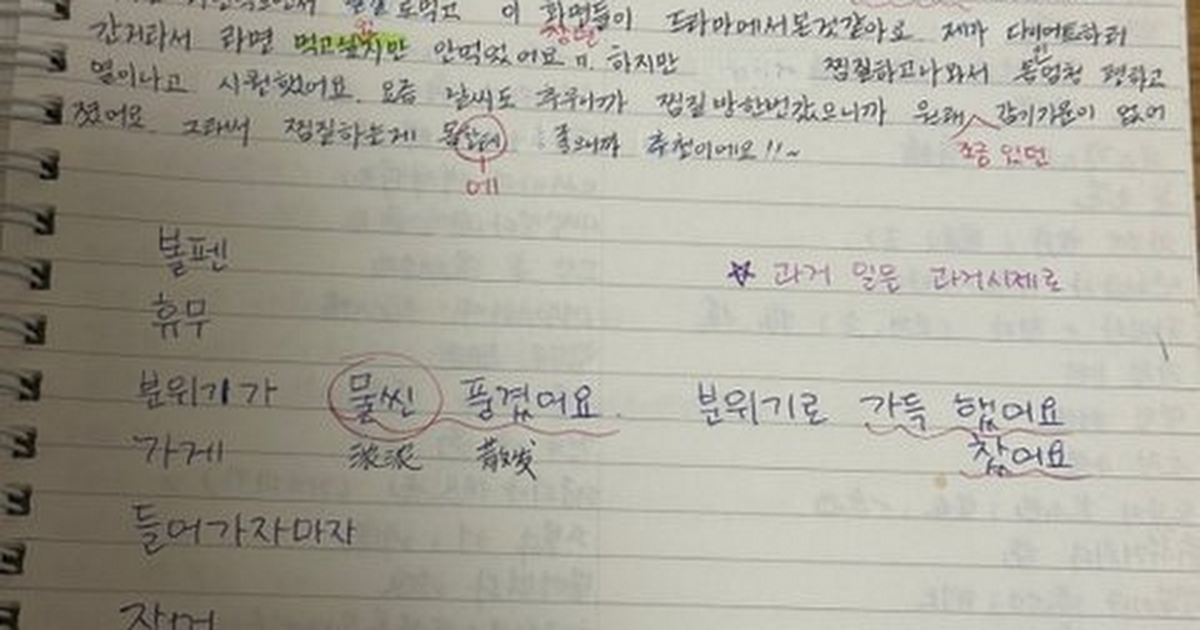 이 화면들이 드라마에서본것같아요 제가 다이어트하러
장면
간지라서 라면 먹고싶지만 안먹었어요ㅠ. 하지만 찜질하고나와서 몸엄청 평하고
열이나고 시원했어요. 요즘 날씨도 추우니까 찜질방한번갔으니까 원래 감기기운이 없어
졌어요 그래서 찜질하는게 몸한테 좋으니까 추천이에요!!~
조금 있던
에
볼펜
☆ 과거 일은 과거시제로
휴무
분위기가 물씬 풍겼어요. 분위기로 가득 했어요
가게 滚滚 散发 찼어요
들어가자마자